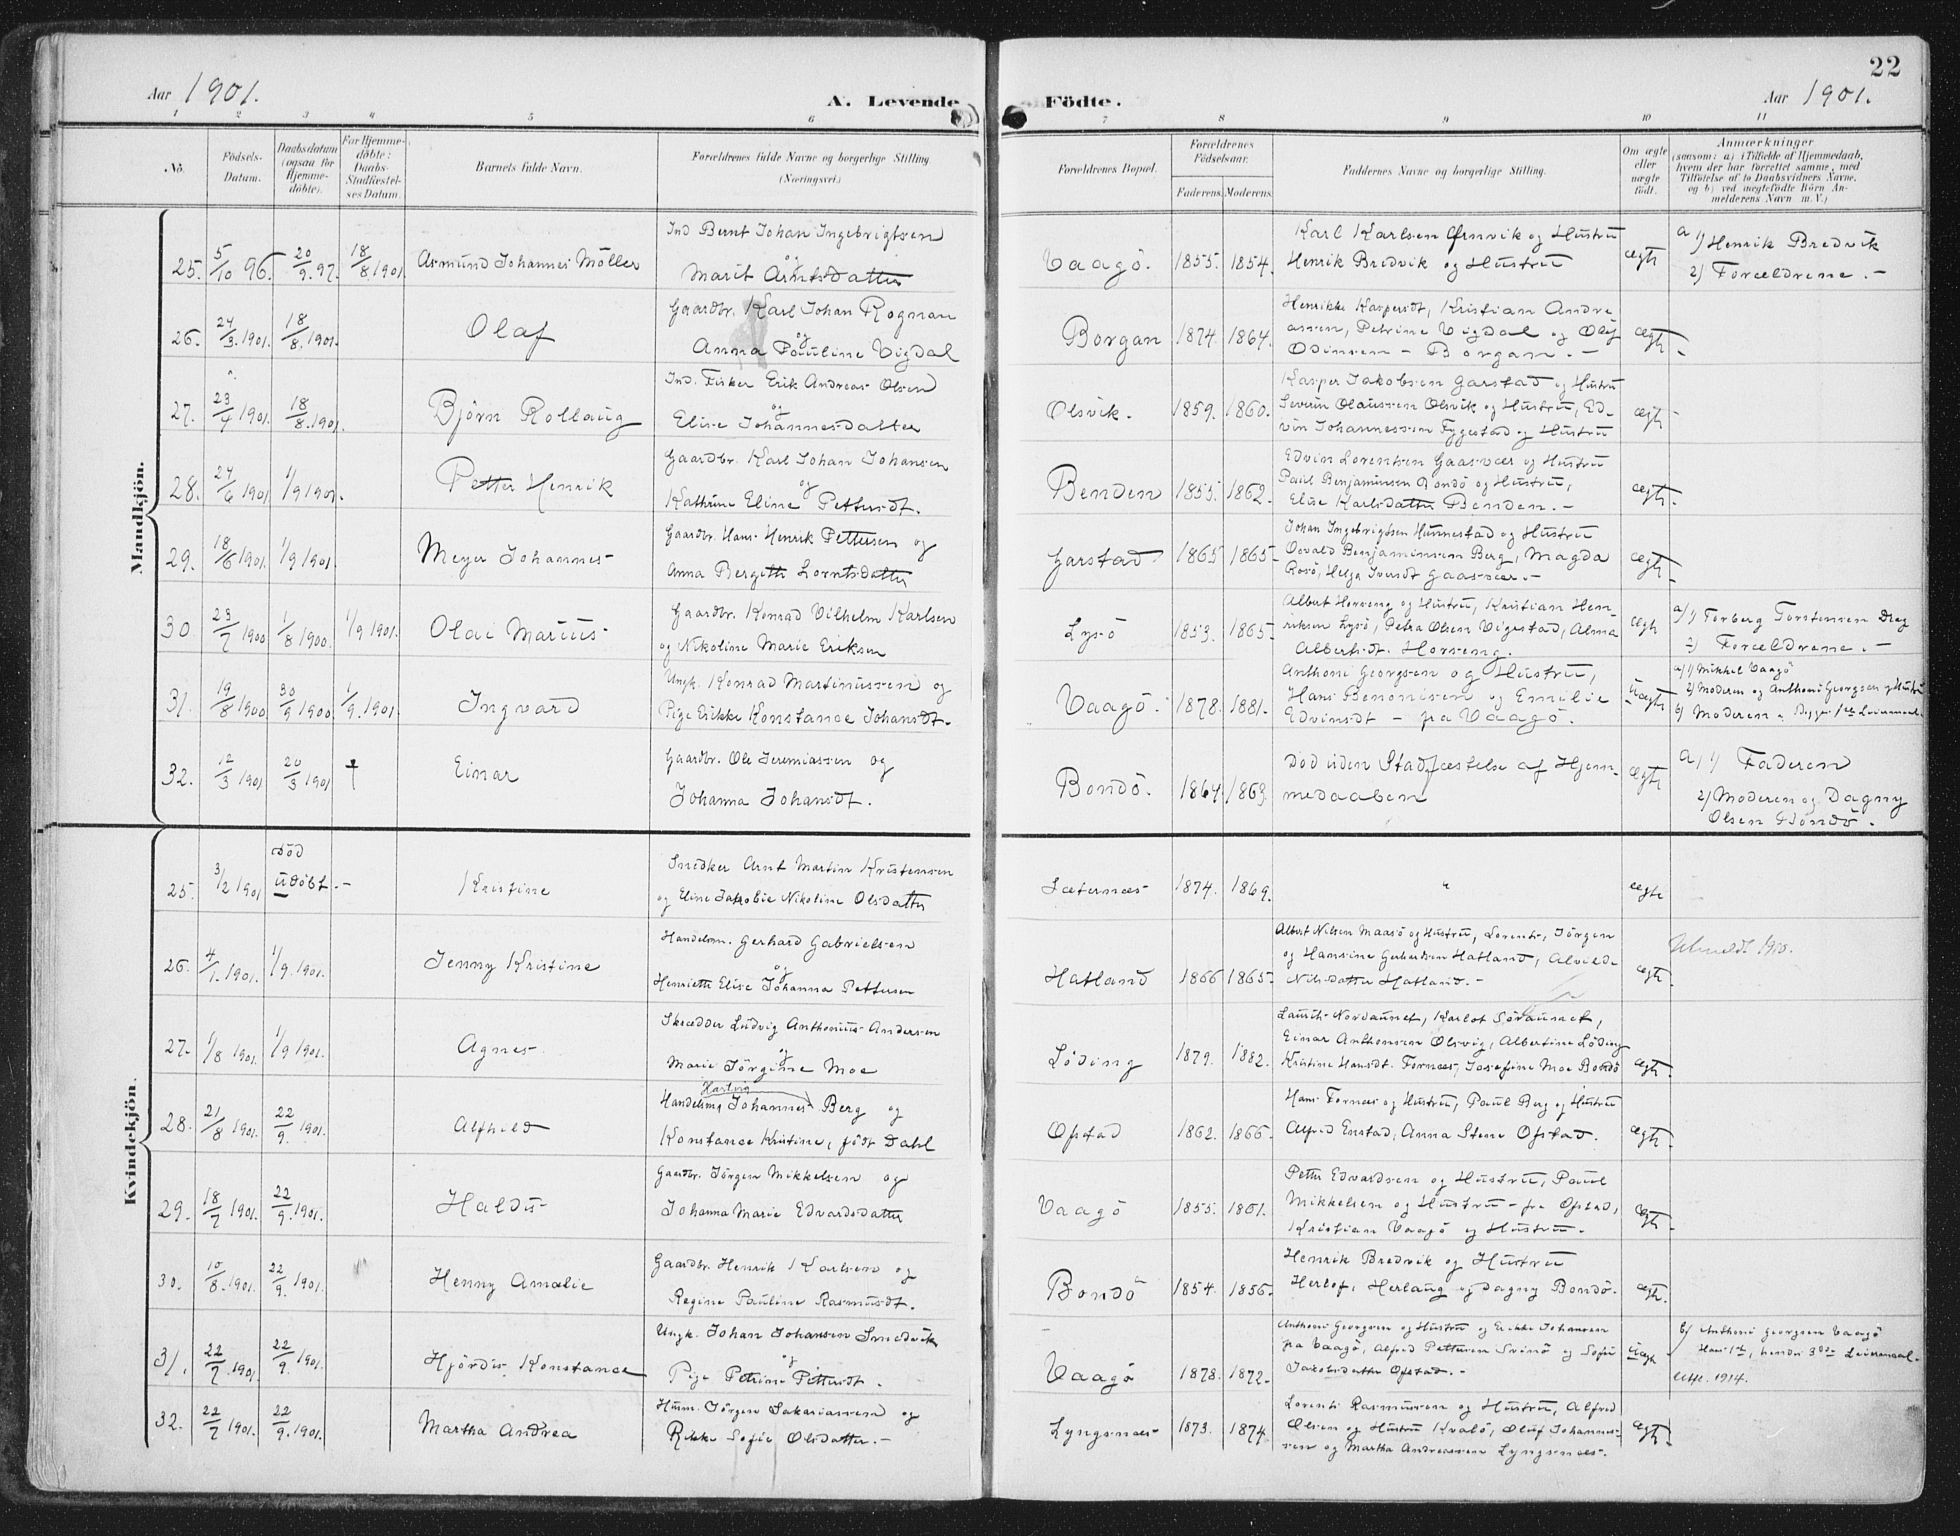 Aar 1901.
A. Levende Födte.
22
Aar 1901.
1 2 3 4 5 6 7 8 9 10 11
No.
Födsels-
Datum.
Daabsdatum
(ogsaa for
Hjemme-
döbte).
For Hjemme-
döbte:
Daabs-
Stadfæstel-
ses Datum.
Barnets fulde Navn.
Forældrenes fulde Navne og borgerlige Stilling
(Næringsvei.)
Forældrenes Bopæl.
Forældrenes
Födselsaar.
Faderens. Moderens.
Faddernes Navne og borgerlige Stilling.
Om ægte
eller
uægte
födt.
Anmærkninger
(saasom: a) i Tilfælde af Hjemmedaab,
hvem der har forrettet samme, med
Tilföielse af to Daabsvidners Navne,
og b) ved uægtefödte Börn An-
melderens Navn m. V.)
Mandkjön.
25. 5/10 96. 20/9 97. 18/8 1901 Asmund Johannes Möller
Ind Bernt Johan Ingebrigtsen
og
Marit Arntsdatter
Vaagö. 1855. 1854.
Karl Karlsen Ørnvik og Hustru
Henrik Bredvik og Hustru
ægte
a 1) Henrik Bredvik
2) Forældrene. -
26. 24/3 1901. 18/8 1901. Olaf
Gaardbr. Karl Johan Rognan
og
Anna Pauline Vigdal
Borgan 1874. 1864.
Henrikke Kaspersdt, Kristian Andre
assen, Petrine Vigdal og Oluf
Odinsen - Borgan. -
ægte
27. 23/4 1901. 18/8 1901. Björn Rollaug
Ind. Fisker Erik Andreas Olsen
og
Elise Johannesdatter
Olsvik. 1859. 1860.
Kasper Jakobsen Garstad og Hustru
Severin Olaussen Olsvik og Hustru, Ed-
vin Johannessen Fyggestad og Hustru
ægte
28. 24/6 1901 1/9 1901. Petter Henrik
Gaardbr. Karl Johan Johansen
og
Kathrine Eline Pettersdt.
Benden 1855. 1862.
Edvin Lorentsen Gaasvær og Hustru
Paul Benjaminsen Bondö og Hustru,
Elise Karlsdatter Benden. -
ægte
29. 18/6 1901. 1/9 1901 Meyer Johannes
Gaardbr. Hans Henrik Pettersen og
Anna Bergette Lorntsdatter
Garstad 1865 1865
Johan Ingebrigtsen Hunnestad og Hustru
Osvald Benjaminsen Berg, Magda
Rosö, Helga Iversdt Gaasvær. -
ægte
30 23/7 1900 1/8 1900. 1/9 1901. Olai Marius
Gaardbr. Konrad Vilhelm Karlsen
og Nikoline Marie Eriksen
Lysö 1853. 1865
Albert Horseng og Hustru, Kristian Hen
riksen Lysö, Petra Olsen Vigestad, Alma
Albertsdt. Horseng.
ægte
a/1) Torberg Torstensen Drag
2) Forældrene. -
31. 19/8 1900 30/9 1900. 1/9 1901. Ingvard
Ungk. Konrad Martinussen og
Pige Erikke Konstance Johansdt.
Vaagö. 1878. 1881.
Anthoni Georgsen og Hustru,
Hans Benonisen og Emilie
Edvinsdt - fra Vaagö.
uægte
a/1) Mikkel Vaagö
2) Moderen og Anthoni Georgsen og Hustru
b) Moderen. Begges 1ste Leiermaal
32. 12/3 1901 20/3 1901 † Einar
Gaardbr. Ole Jeremiassen og
Johanna Johansdt.
Bondö. 1864 1863
Död uden Stadfæstelse af Hjem-
medaaben
ægte
a, 1) Faderen
2) Moderen og Dagny
Olsen Bondö.
Kvindekjön.
25. 3/2 1901 Död
udöbt. - Kristine
Snedker Arnt Martin Kristensen
og Eline Jakobie Nikoline Olsdatter
Sæternæs 1874. 1869.
"
ægte
26. 4/1 1901. 1/9 1901. Jenny Kristine
Handelsm. Gerhard Gabrielsen
og
Henriette Elise Johanna Pettersen
Hatland 1866 1865
Albert Nilsen Maasö og Hustru, Lorents, Jörgen
og Hansine Gerhardsen Hatland, Alvilde
Nilsdatter Hatland. -
ægte
Utmeldt 1910.
27. 1/8 1901. 1/9 1901. Agnes
Skrædder Ludvig Anthonius Andersen
og
Marie Jörgine Moe
Löding 1879. 1882.
Laurits Nordaunet, Karlot Söraunet,
Einar Anthonsen Olsvig, Albertine Löding
Kristine Hansdt. Fornæs, Josefine Moe Bondö
ægte
28. 21/8 1901. 22/9 1901. Alfhild
Hartvig
Handelsmd Johannes Berg og
Konstance Kristine, född Dahl
Ofstad 1862. 1866.
Hans Fornæs og Hustru, Paul Berg og Hustru
Alfred Enstad, Anna Stene Ofstad.
ægte
29. 18/7 1901. 22/9 1901. Haldis
Gaardbr. Jörgen Mikkelsen og
Johanna Marie Edvardsdatter
Vaagö 1855. 1861.
Petter Edvardsen og Hustru, Paul
Mikkelsen og Hustru - fra Ofstad,
Kristian Vaagö og Hustru.
ægte
30. 10/8 1901. 22/9 1901 Henny Amalie
Gaardbr. Henrik Karlsen og
Regine Pauline Rasmusdt.
Bondö 1854. 1856.
Henrik Bredvik og Hustru
Herlof, Herlaug og Dagny Bondö.
ægte
31. 22/7 1901 22/9 1901 Hjördis Konstance
Ungk. Johan Johansen Smedvik
og
Pige Petrine Pettersdt.
Vaagö 1878. 1872.
Anthoni Georgsen og Hustru og Erikke Johansen
fra Vaagö, Alfred Pettersen Svinö og Sofie
Jakobsdatter Ofstad. -
uægte
b/ Anthoni Georgsen Vaagö
Hans 1ste, hendes 3die Leiermaal
1914.
32. 22/7 1901 22/9 1901. Martha Andrea
Husm. Jörgen Sakariassen og
Rikke Sofie Olsdatter. -
Lyngsnæs 1873. 1874
Lorents Rasmussen og Hustru, Alfred
Olsen og Hustru Kvalö, Oluf Johannes-
sen og Martha Andreassen Lyngsnæs.
ægte